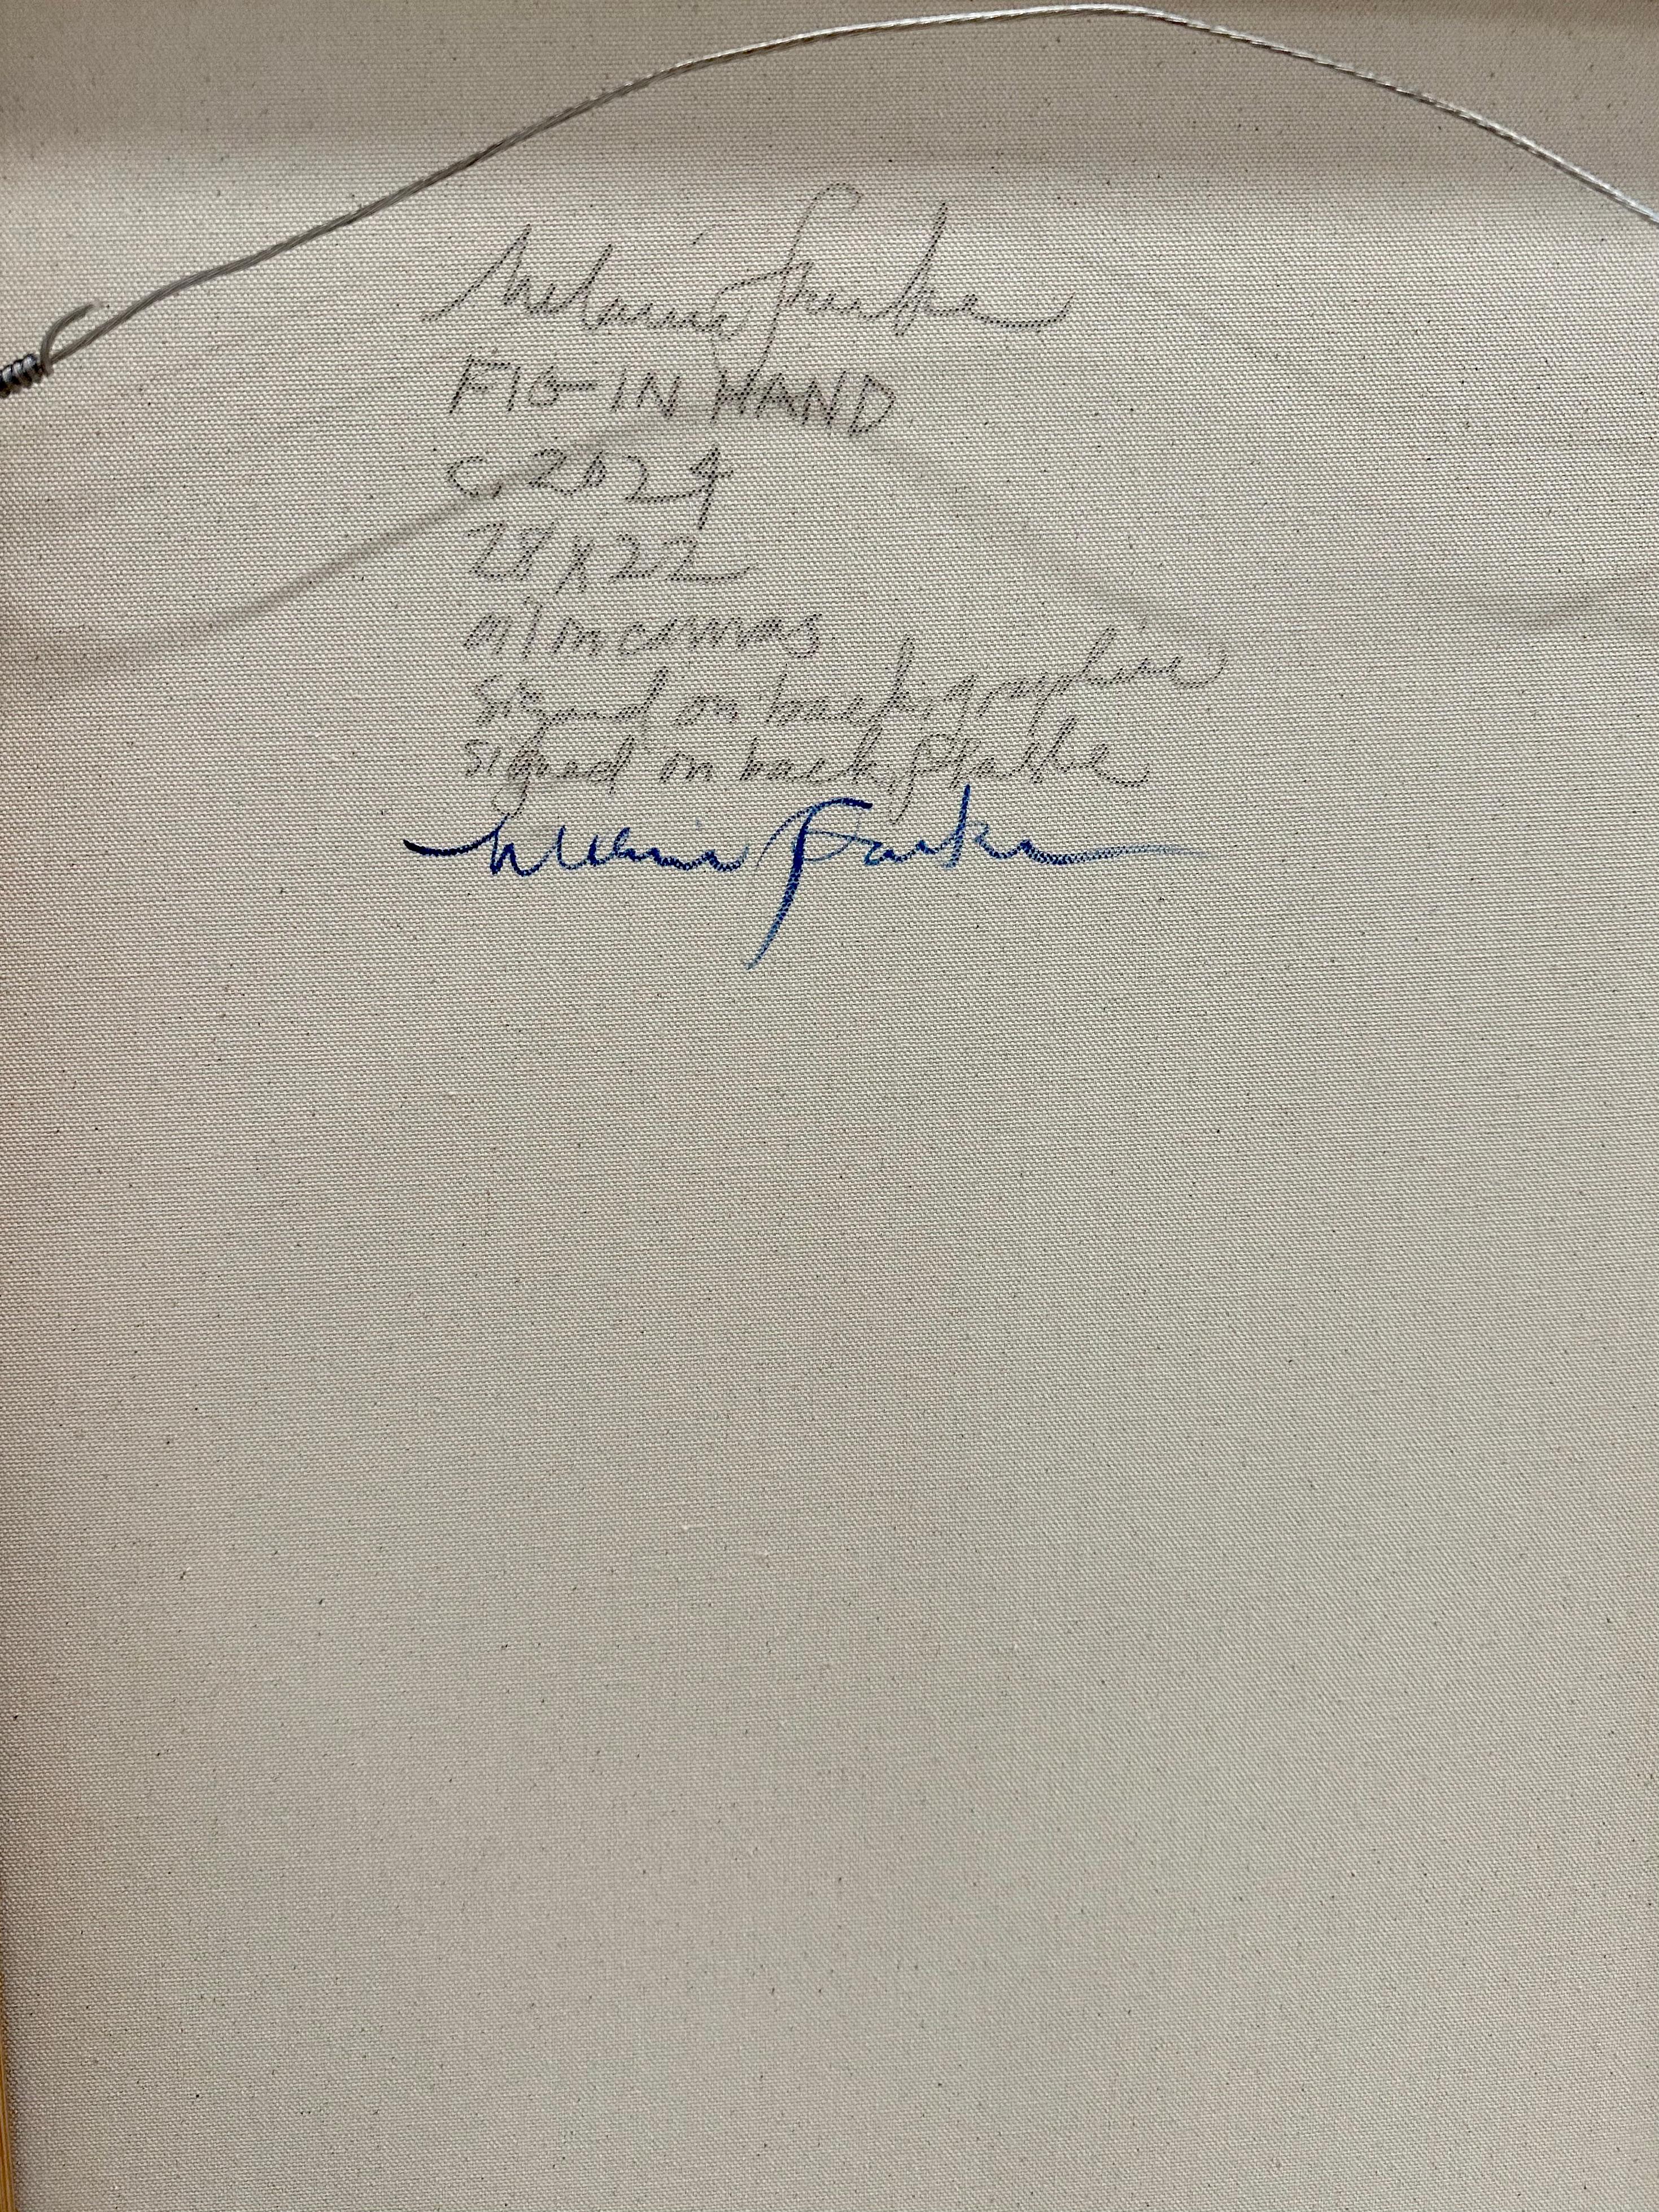 Melanie Parke
FIG IN HAND
c. 2024
28x22
oil on canvas
signed on back, graphite
signed on back,
Melanie Parke